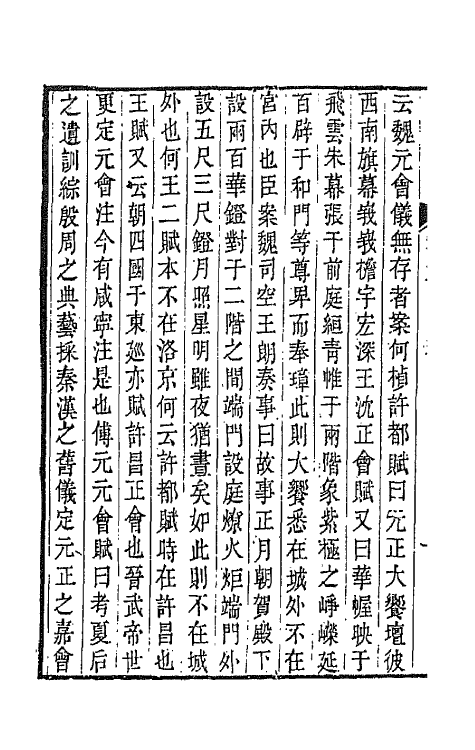 云魏元會儀無存者案何楨許都賦曰元正大饗壇彼
西南旗幕峩峩檐宇宏深王沈正會賦又曰華幄映于
飛雲朱幕張于前庭絙青帷于兩階象紫極之崢嶸延
百辟于和門等尊卑而奉璋此則大饗悉在城外不在
宮內也臣案魏司空王朗奏事曰故事正月朝賀殿下
設兩百華鐙對于二階之間端門設庭燎火炬端門外
設五尺三尺鐙月照星明雖夜猶晝矣如此則不在城
外也何王二賦本不在洛京何云許都賦時在許昌也
王賦又云朝四國于東廵亦賦許昌正會也晉武帝世
更定元會注今有咸寧注是也傅元元會賦曰考夏后
之遺訓綜殷周之典藝採秦漢之舊儀定元正之嘉會